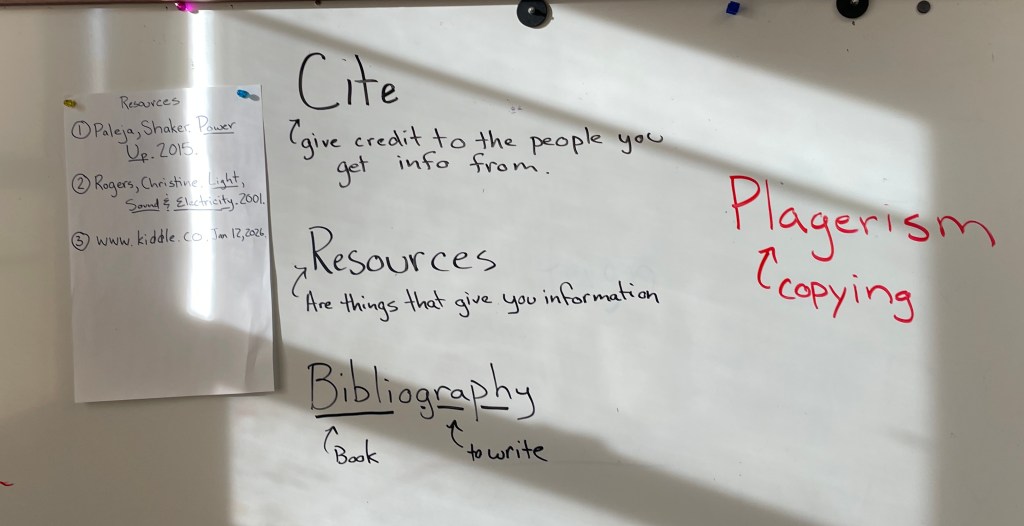 Resources
① Paleja, Shaker. Power
Up. 2015.
② Rogers, Christine. Light,
Sound & Electricity. 2001.
③ www.kiddle.co. Jan 12, 2026.
Cite
give credit to the people you
get info from.
Resources
Are things that give you information
Bibliography
Book
to write
Plagerism
copying